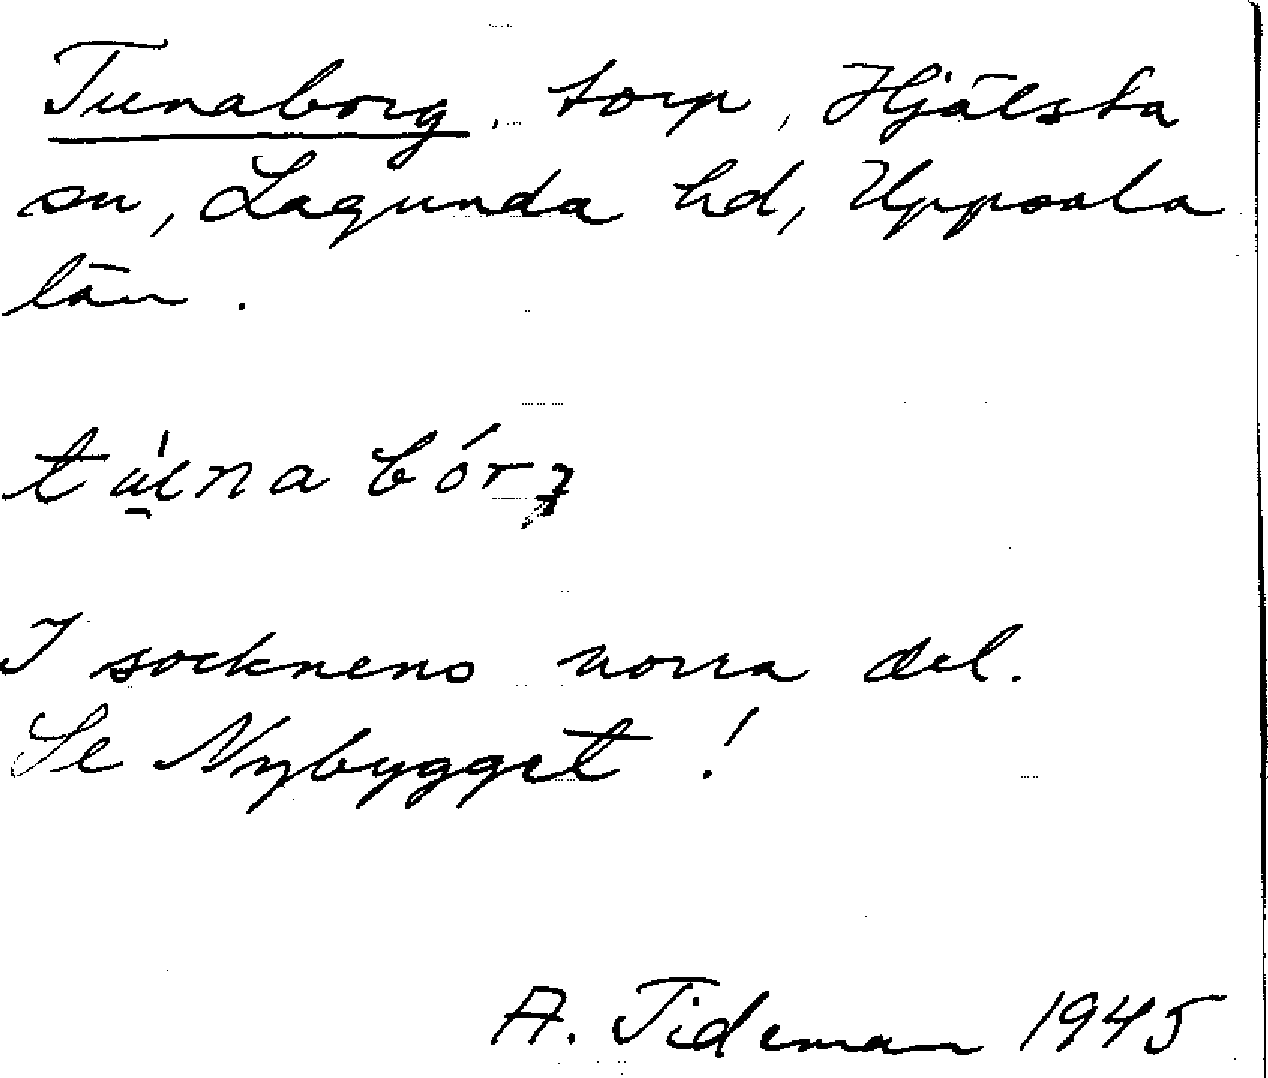 Tunaborg, torp, Hjälsta
sn, Lagunda hd, Uppsala
län.
I socknens norra del.
Se Nybygget!
A. Tideman 1945